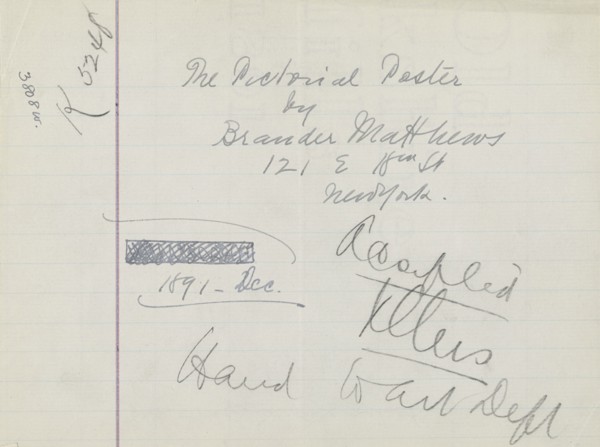 K 5248
3808 w.
The Pictorial Poster
by
Brander Matthews
121 E 18th St
New York.
Accepted
1891 - Dec.
Hand to Art Dept